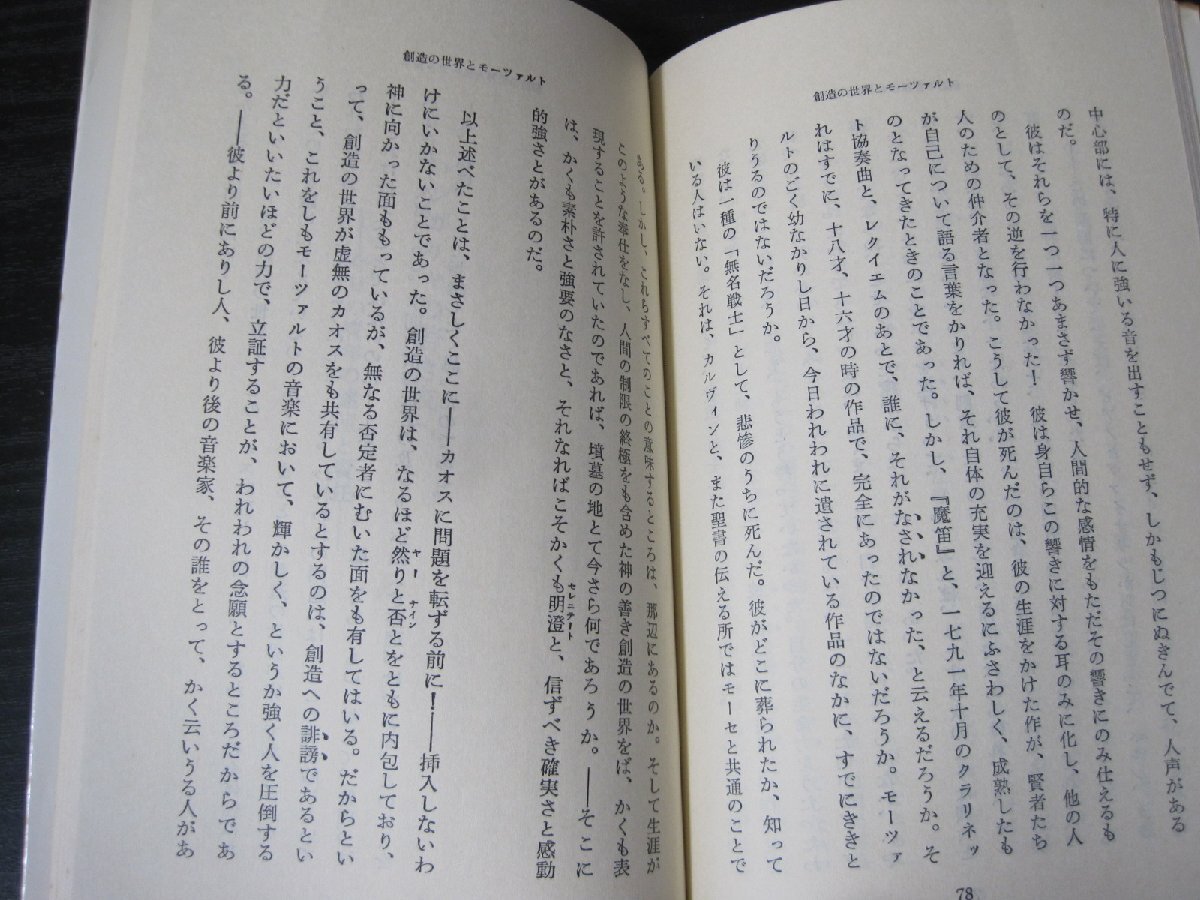 創造の世界とモーツァルト
中心部には、特に人に強いる音を出すこともせず、しかもじつにぬきんでて、人声がある
のだ。
彼はそれらを一つ一つあまさず響かせ、人間的な感情をもただその響きにのみ仕えるも
のとして、その逆を行わなかった！　彼は身自らこの響きに対する耳のみに化し、他の人
人のための仲介者となった。こうして彼が死んだのは、彼の生涯をかけた作が、賢者たち
が自己について語る言葉をかりれば、それ自体の充実を迎えるにふさわしく、成熟したも
のとなってきたときのことであった。しかし、『魔笛』と、一七九一年十月のクラリネッ
ト協奏曲と、レクイエムのあとで、誰に、それがなされなかった、と云えるだろうか。そ
れはすでに、十八才、十六才の時の作品で、完全にあったのではないだろうか。モーツァ
ルトのごく幼なかりし日から、今日われわれに遺されている作品のなかに、すでにききと
りうるのではないだろうか。
彼は一種の「無名戦士」として、悲惨のうちに死んだ。彼がどこに葬られたか、知って
いる人はいない。それは、カルヴィンと、また聖書の伝える所ではモーセと共通のことで
78
創造の世界とモーツァルト
ある。しかし、これらすべてのことの意味するところは、那辺にあるのか。そして生涯が
このような奉仕をなし、人間の制限の終極をも含めた神の善き創造の世界をば、かくも表
現することを許されていたのであれば、墳墓の地とて今さら何であろうか。――そこに
は、かくも素朴さと強要のなさと、それなればこそかくも明澄セレニテートと、信ずべき確実さと感動
的強さとがあるのだ。
以上述べたことは、まさしくここに――カオスに問題を転ずる前に！――挿入しないわ
けにいかないことであった。創造の世界は、なるほど然ヤーりと否ナインとをともに内包しており、
神に向かった面ももっているが、無なる否定者にむいた面をも有してはいる。だからとい
って、創造の世界が虚無のカオスをも共有しているとするのは、創造への誹謗であるとい
うこと、これをしもモーツァルトの音楽において、輝かしく、というか強く人を圧倒する
力だといいたいほどの力で、立証することが、われわれの念願とするところだからであ
る。――彼より前にありし人、彼より後の音楽家、その誰をとって、かく云いうる人があ